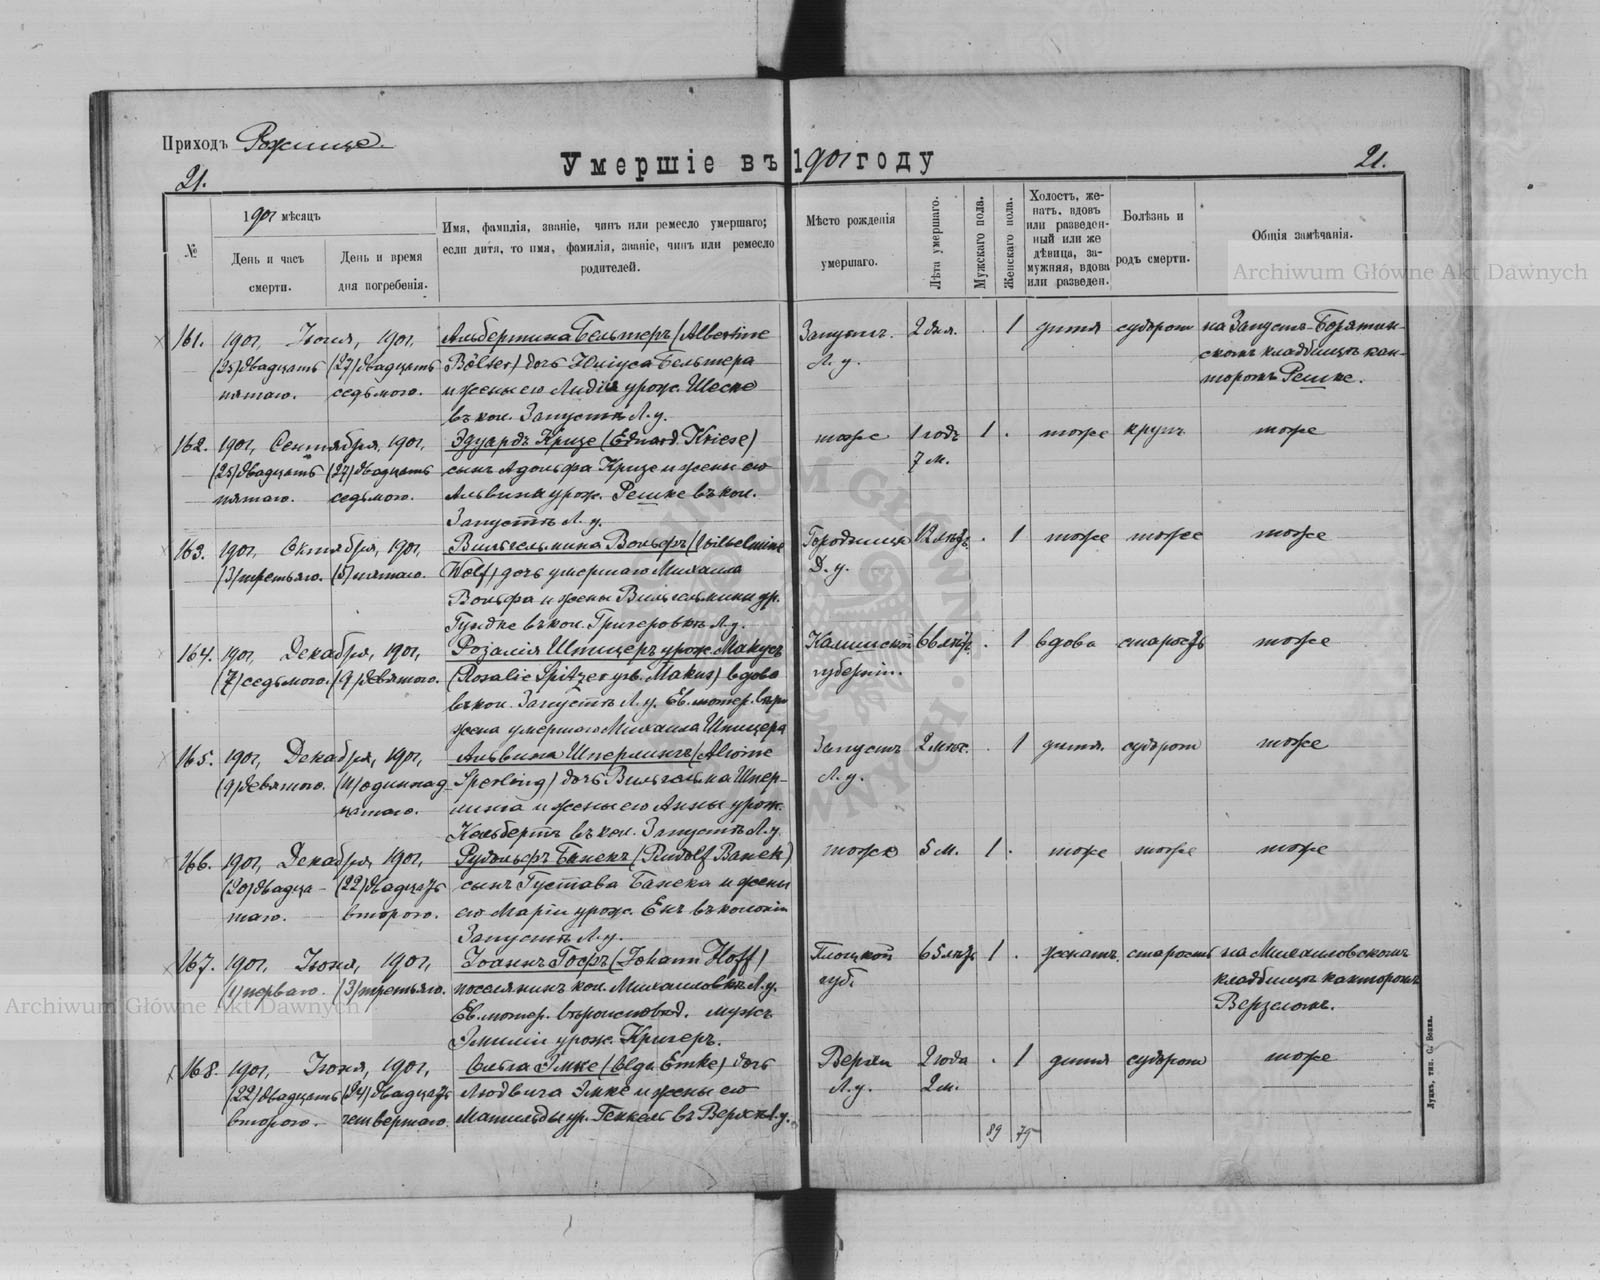 Приходъ Рожище.
Умершіе въ 1901 году
21.
21.
№
1901 мѣсяцъ
День и часъ смерти.
День и время дня погребенія.
Имя, фамилія, званіе, чинъ или ремесло умершаго;
если дитя, то имя, фамилія, званіе, чинъ или ремесло
родителей.
Мѣсто рожденія
умершаго.
Лѣта умершаго.
Мужскаго пола.
Женскаго пола.
Холостъ, же-
натъ, вдовъ
или разведен-
ный или же
дѣвица, за-
мужняя, вдова
или разведен.
Болѣзнь и
родъ смерти.
Общія замѣчанія.
Archiwum Główne Akt Dawnych
161. 1901, Іюня, 1901, Альбертина Бельтеръ (Albertine Запустъ 2 дня. . 1 дитя судорот на Запустъ-Борятин-
(25) двадцать (27) двадцать Bölter) дочь Юліуса Бельтера Л. у. скомъ кладбищѣ кан-
пятаго. седьмого. и жены его Лидіи урож. Шеске торомъ Решке.
въ кол. Запустъ Л. у.
162. 1901, Сентября, 1901, Эдуардъ Кризе (Eduard Kriese) тоже 1 годъ 1 . тоже крупъ тоже
(25) двадцать (27) двадцать сынъ Адольфа Кризе и жены его 7 м.
пятаго. седьмого. Альвины урож. Решке въ кол.
Запустъ Л. у.
163. 1901, Октября, 1901, Вильгельмина Вольфъ (Wilhelmine Городище 12 лѣтъ . 1 тоже тоже тоже
(3) третьяго. (5) пятаго. Wolf) дочь умершаго Михаила Д. у.
Вольфа и жены Вильгельмины ур.
Гундке въ кол. Григеровкѣ Л. у.
164. 1901, Декабря, 1901, Розалія Шпицеръ урож. Макусъ Калишской 66 лѣтъ . 1 вдова старость тоже
(7) седьмого. (9) девятого. (Rosalie Spitzer geb. Makus) вдова губерніи.
въ кол. Запустѣ Л. у. Ев. лютер. вѣры
жена умершаго Михаила Шпицера
165. 1901, Декабря, 1901, Альвина Шперлингъ (Alwine Запустъ 2 мѣс. . 1 дитя. судорот тоже
(9) девятого. (11) одиннад- Sperling) дочь Вильгельма Шпер- Л. у.
цатаго. линга и жены его Анны урож.
Кельбертъ въ кол. Запустѣ Л. у.
166. 1901, Декабря, 1901, Рудольфъ Банекъ (Rudolf Banek) тоже 5 м. 1 . тоже тоже тоже
(20) двадца- (22) двадцать сынъ Густава Банека и жены
таго. второго. его Маріи урож. Енъ въ колоніи
Запустѣ Л. у.
167. 1901, Іюня, 1901, Іоаннъ Гофъ (Johann Hoff) Плоцкой 65 лѣтъ 1 . женатъ. старость на Михаиловскомъ
(1) перваго. (3) третьяго. поселянинъ кол. Михаиловкѣ Л. у. губ. кладбищѣ канторомъ
Ев. лютер. вѣроисповѣд. мужъ Верзеломъ.
Эмиліи урож. Кригеръ.
168. 1901, Іюня, 1901, Ольга Эмке (Olga Emke) дочь Верхи 2 года . 1 дитя судорот тоже
(22) двадцать (24) двадцать Людвига Эмке и жены его Л. у. 2 м.
второго. четвертаго. Матильды ур. Генкель въ Верхи Л. у.
89 75
Archiwum Główne Akt Dawnych
Луцкъ, тип. С. Бокна.